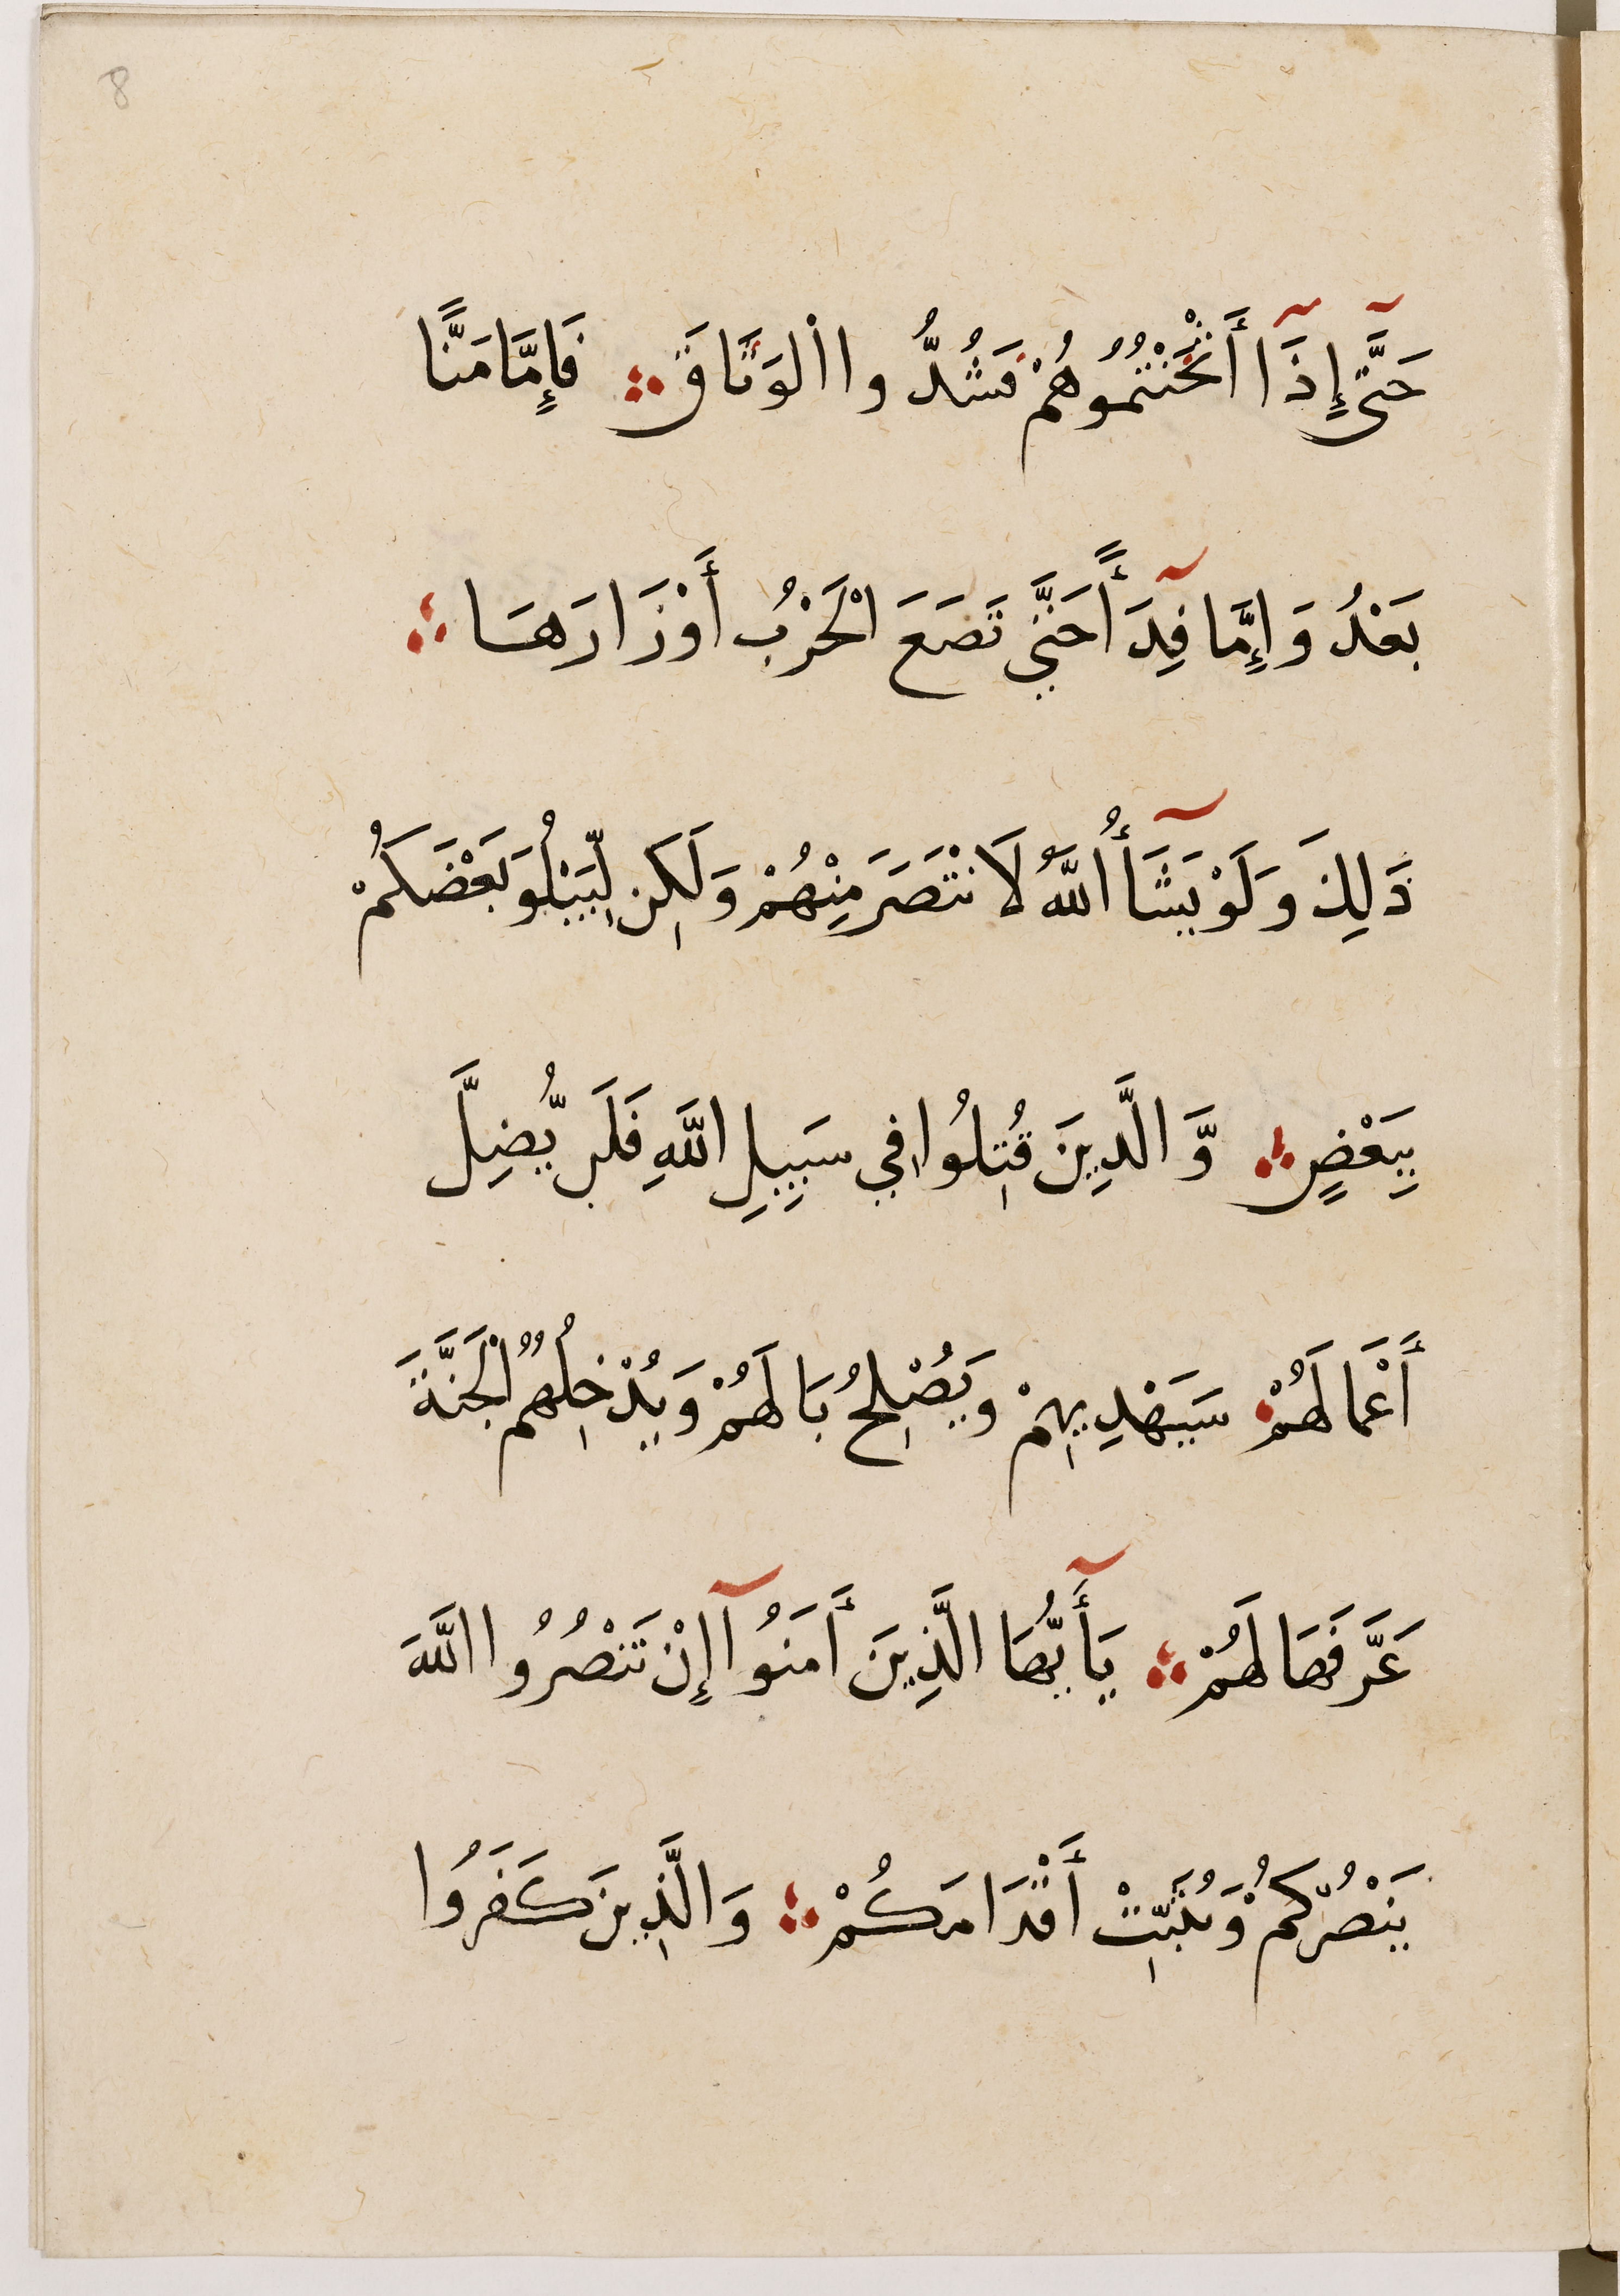 8
حَتَّىٰٓ إِذَآ أَثْخَنْتُمُوهُمْ فَشُدُّوا الْوَثَاقَ ۞ فَإِمَّا مَنًّا
بَعْدُ وَإِمَّا فِدَآءً حَتَّى تَضَعَ الْحَرْبُ أَوْزَارَهَا ۞
ذَلِكَ وَلَوْ يَشَآءُ اللَّهُ لَانْتَصَرَ مِنْهُمْ وَلَكِن لِّيَبْلُوَ بَعْضَكُمْ
بِبَعْضٍ ۞ وَّالَّذِينَ قُتِلُوا فِي سَبِيلِ اللَّهِ فَلَن يُّضِلَّ
أَعْمَالَهُمْ سَيَهْدِيهِمْ وَيُصْلِحُ بَالَهُمْ وَيُدْخِلُهُمُ الْجَنَّةَ
عَرَّفَهَا لَهُمْ ۞ يَآأَيُّهَا الَّذِينَ أَمَنُوآ إِنْ تَنْصُرُوا اللَّهَ
يَنْصُرْكُمْ وَيُثَبِّتْ أَقْدَامَكُمْ ۞ وَالَّذِينَ كَفَرُوا